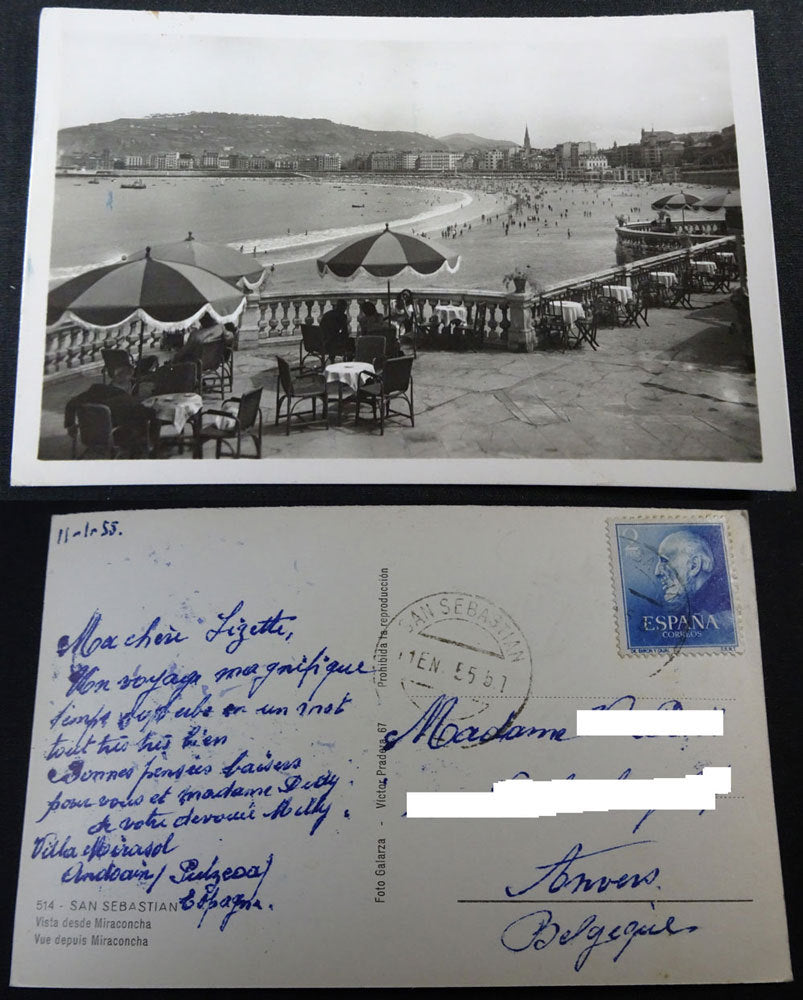 11-1-55.
Ma chère Lizette,
Un voyage magnifique
temps superbe en un mot
tout très très bien
Bonnes pensées baisers
pour vous et madame Deddy.
de votre devouée Milly.
Villa Mirasol
Andoain (Puizcoa)
Espagne.
514 - SAN SEBASTIAN
Vista desde Miraconcha
Vue depuis Miraconcha
Foto Galarza - Víctor Pradera, 67 Prohibida la reproducción
SAN SEBASTIAN
11EN. 55
ESPAÑA
CORREOS
Madame
Anvers.
Belgeque